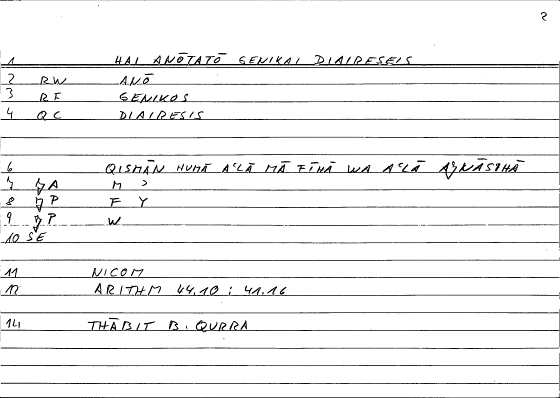 2
1 HAI ANŌTATŌ GENIKAI DIAIRESEIS
2 RW ANŌ
3 RF GENIKOS
4 QC DIAIRESIS
6 QISMĀN HUMĀ AʿLĀ MĀ FĪHĀ WA AʿLĀ
7 A M ʾ
8 P F Y
9 P W
10 SE
11 NICOM
12 ARITHM 44.10 ; 41.16
14 THĀBIT B. QURRA